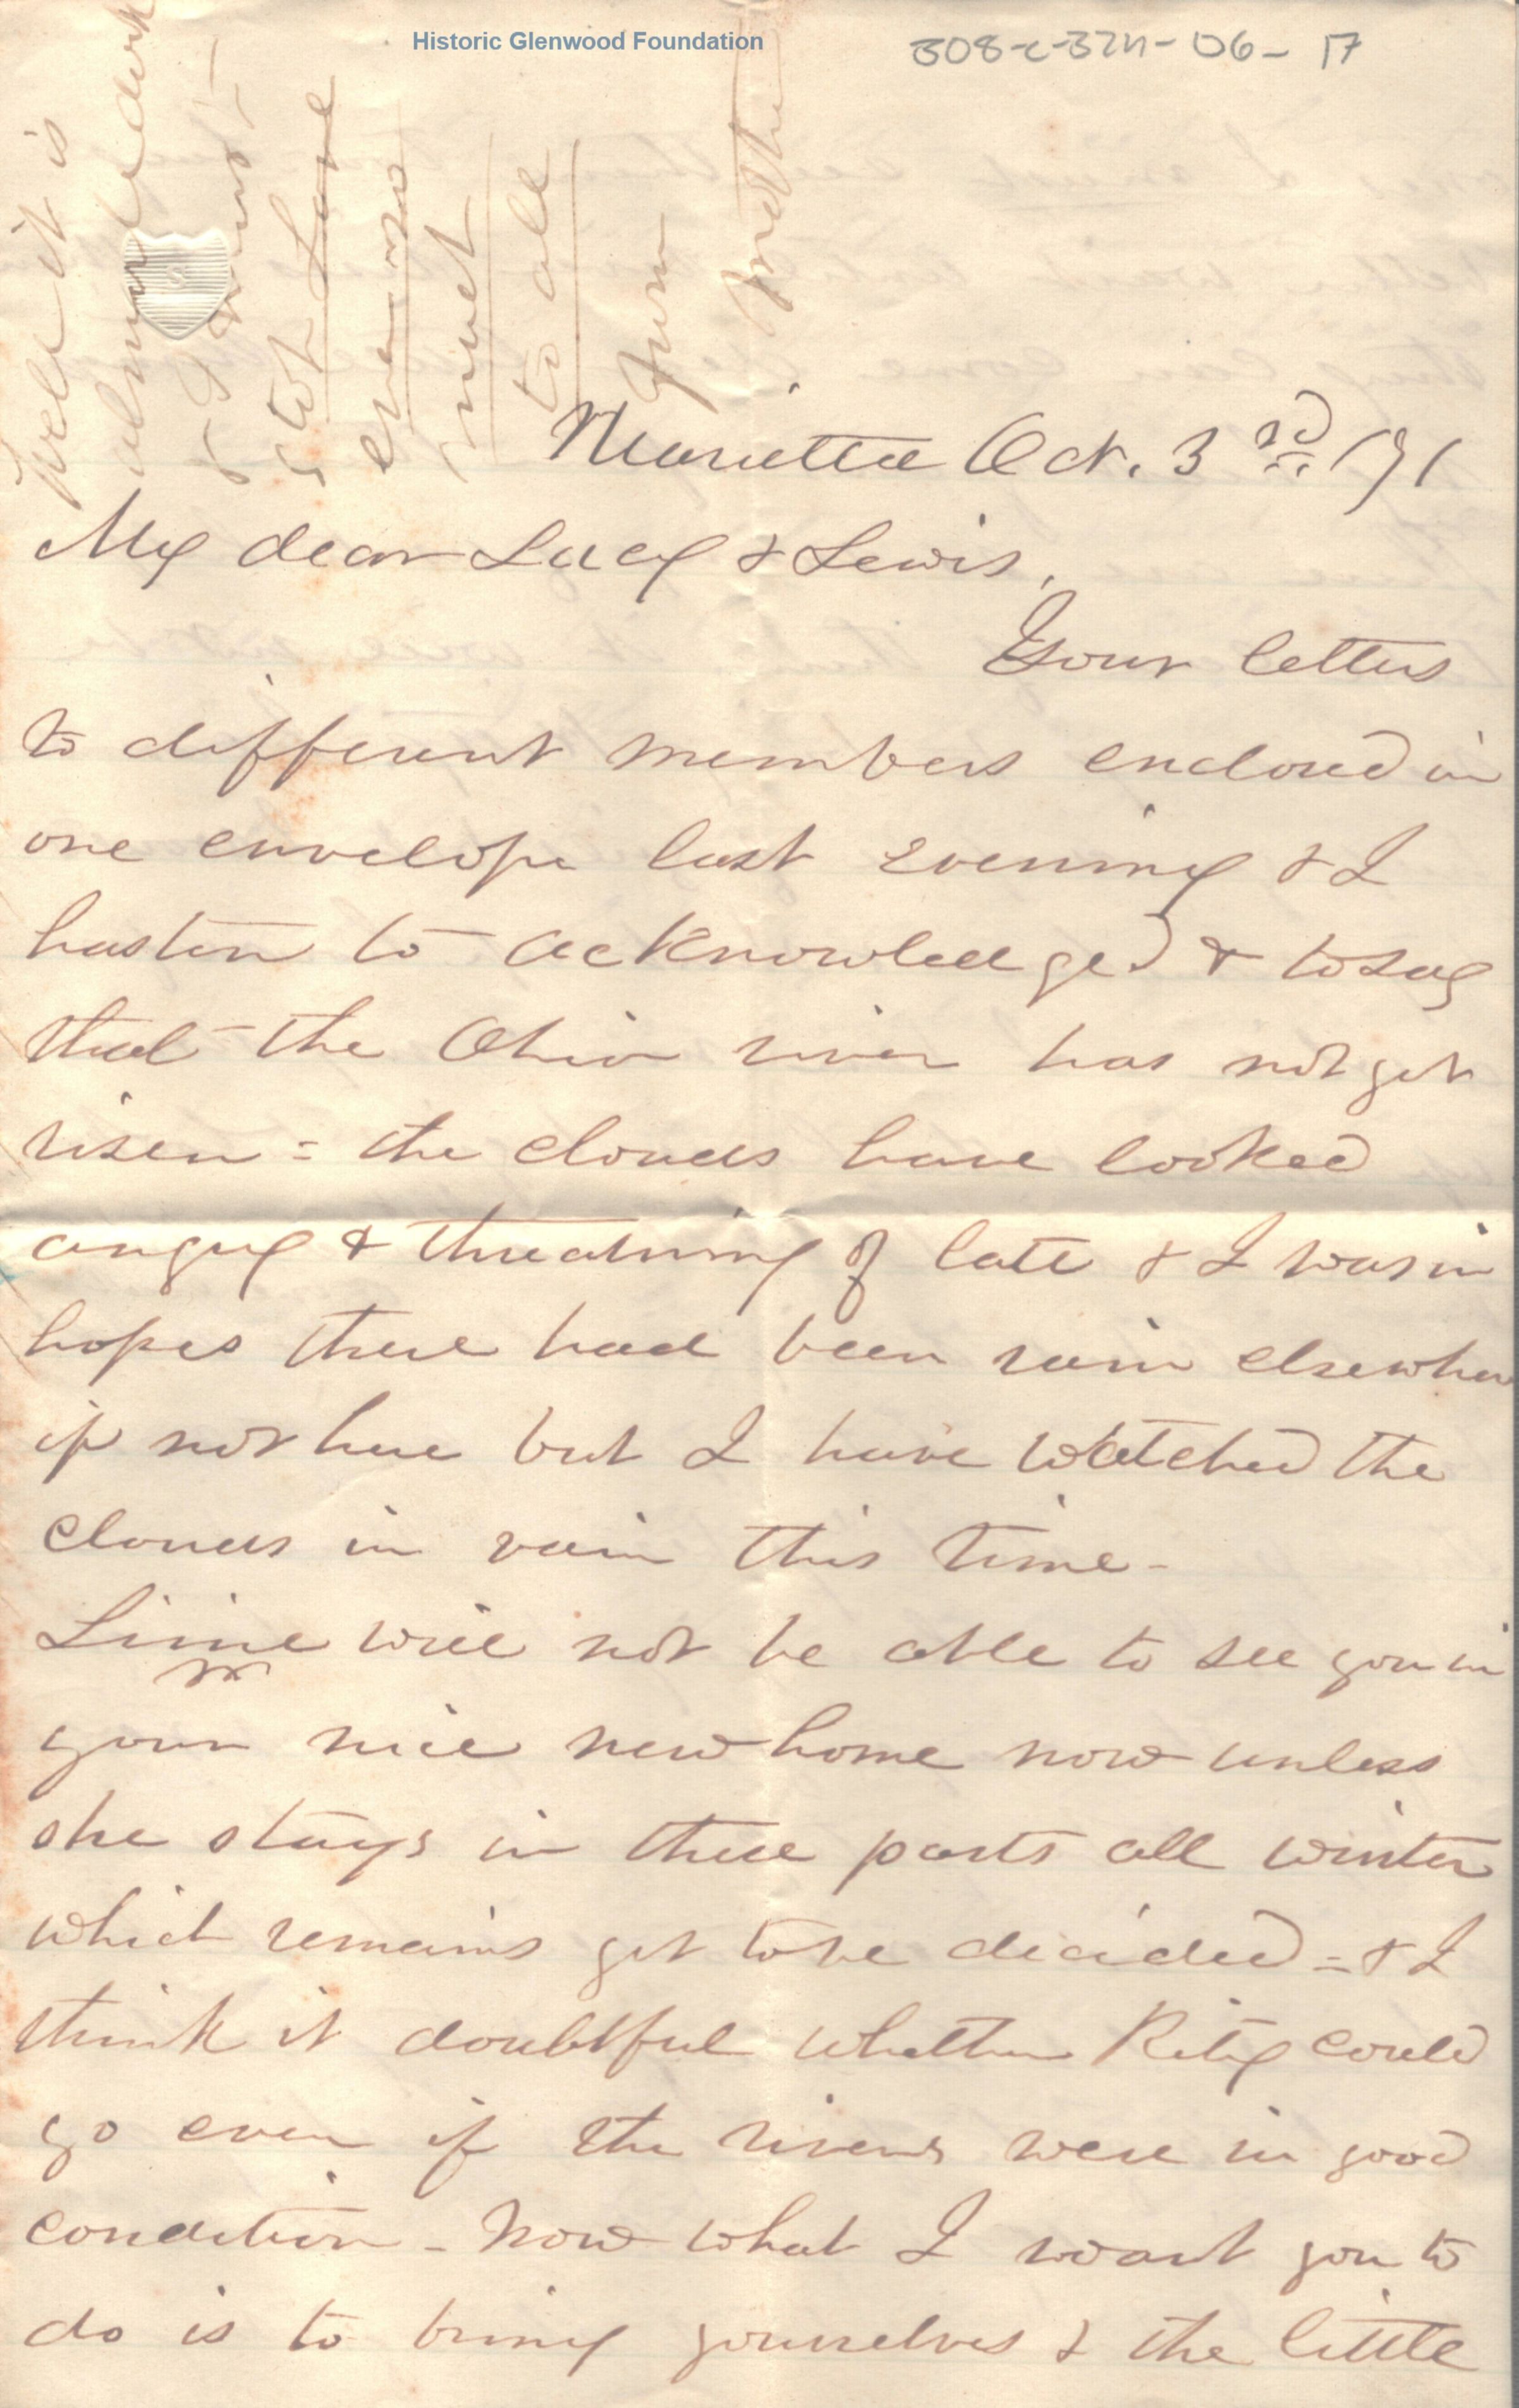 Historic Glenwood Foundation
308-c-32n-06-17
Well it is
almost dark
& I must
stop Love
ever so
much
to all
Your
Mother
Marietta Oct. 3rd /71
My dear Lucy & Lewis,
Your letters
to different members enclosed in
one envelope last evening & I
hasten to acknowledge & to say
that the Ohio river has not yet
risen = the clouds have looked
angry & threatning of late & I was in
hopes there had been rain elsewhere
if not here but I have watched the
clouds in vain this time -
will not be able to see you in
your nice new home now unless
she stays in these parts all winter
which remains yet to be decided = & I
think it doubtful whether Rity could
go even if the rivers were in good
condition - Now what I want you to
do is to bring yourselves & the little